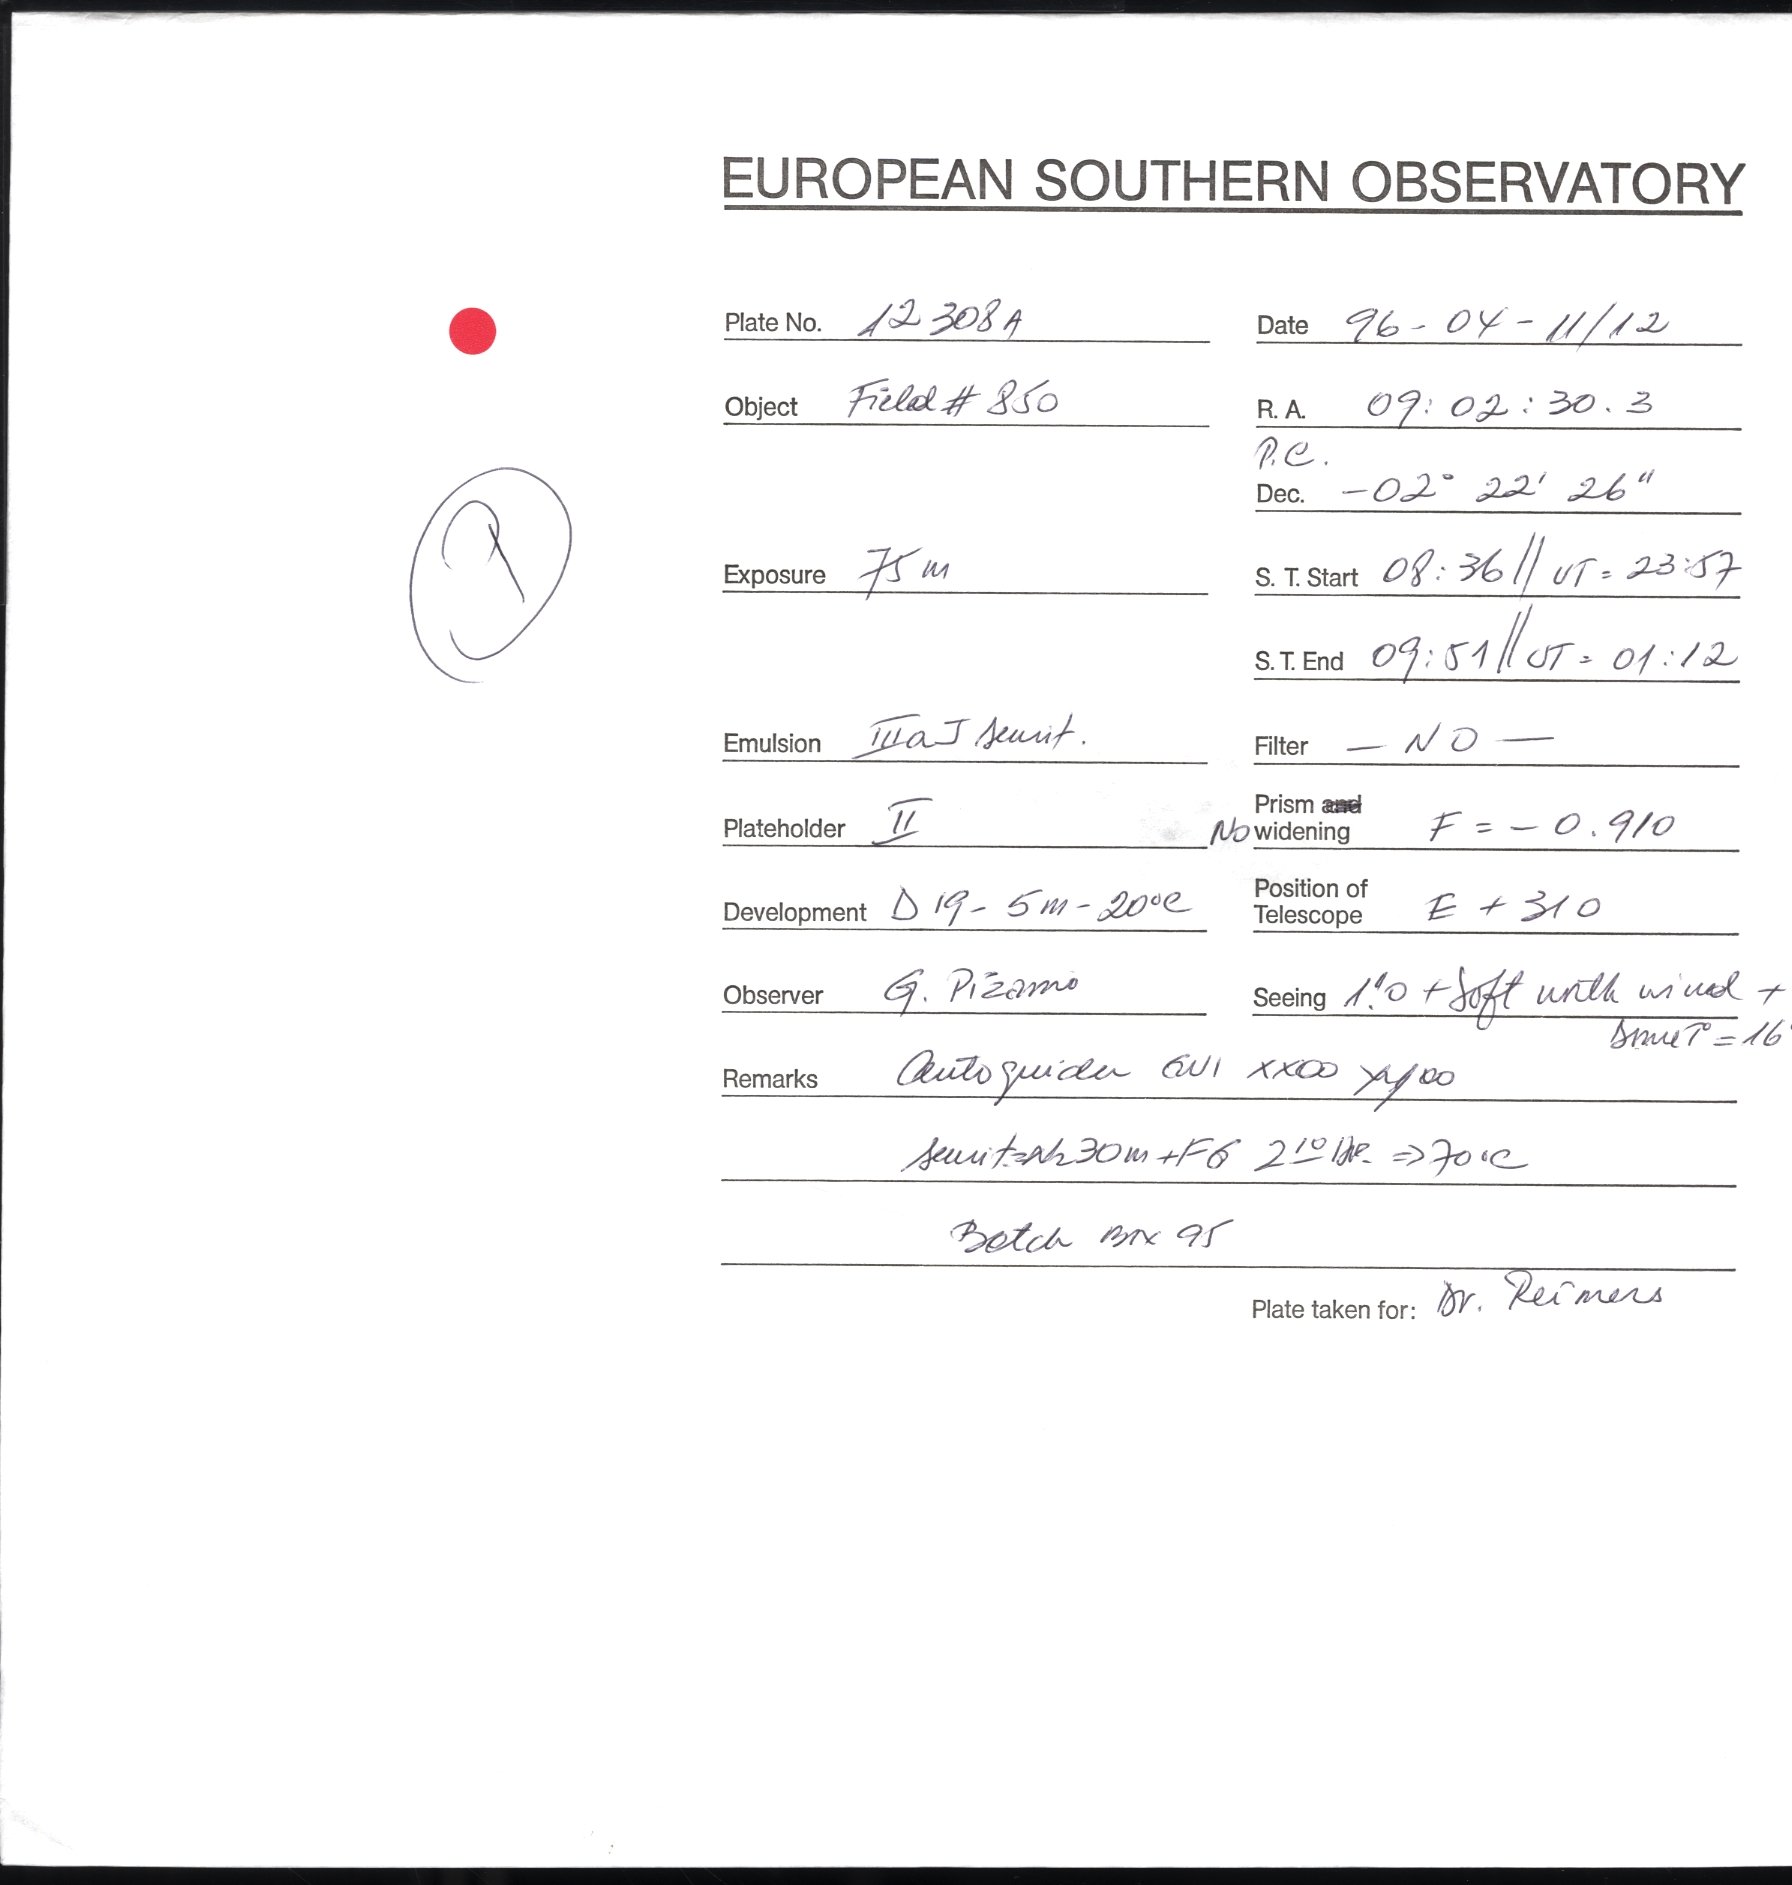 EUROPEAN SOUTHERN OBSERVATORY
Plate No. 12308A Date 96-04-11/12
Object Field # 850 R. A. 09:02:30.3
P.C.
Dec. -02° 22' 26"
Exposure 75m S. T. Start 08:36 // UT = 23:57
S. T. End 09:51 // UT = 01:12
Emulsion IIIaJ sensit. Filter — NO —
Plateholder II No Prism and widening F = -0.910
Development D19 - 5m - 20°C Position of Telescope E + 310
Observer G. Pizarro Seeing 1".0 + Soft north wind +
Dome T° = 16°
Remarks Autoguider GV1 XX00 YY00
30m + FG 2 70°C
Batch Box 95
Plate taken for: Dr. Reimers